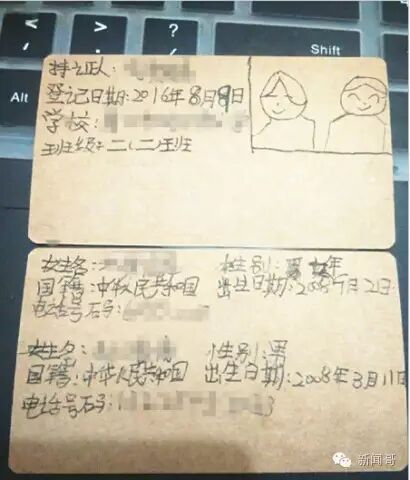 < >
, .
Shift
Alt
持证人:
登记日期:2016年8月9日
学校:
班级:二(二)班
姓名: 性别: 女
国籍:中华人民共和国 出生日期:2008年 月2日
电话号码:
姓名: 性别:男
国籍:中华人民共和国 出生日期:2008年3月11日
电话号码: 3
新闻哥